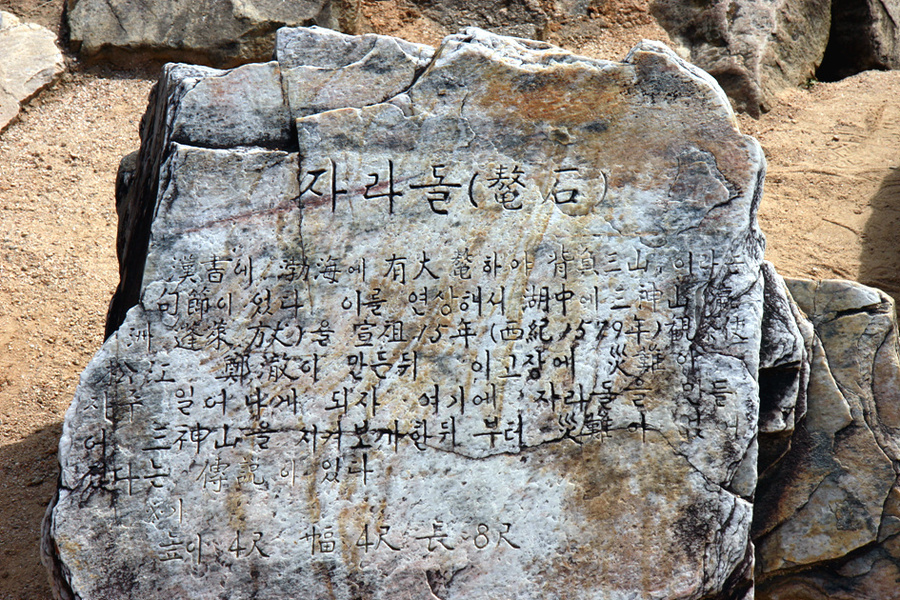 자라돌(鼇石)
漢書에 渤海에 有大鼇하야 背負三山 이라는
句節이 있다 이를 연상해서 湖中에 三神山(瀛
洲 蓬萊 方丈)을 宣祖 15年(西紀 1579年) 觀察使
松江 鄭澈이 만든뒤 이고장에 災難이
자주 일어나게 되자 여기에 자라돌을 만들
어 三神山을 지켜보게한뒤 부터 災難이
다는 傳說이 있다
높이 4尺 幅 4尺 長 8尺